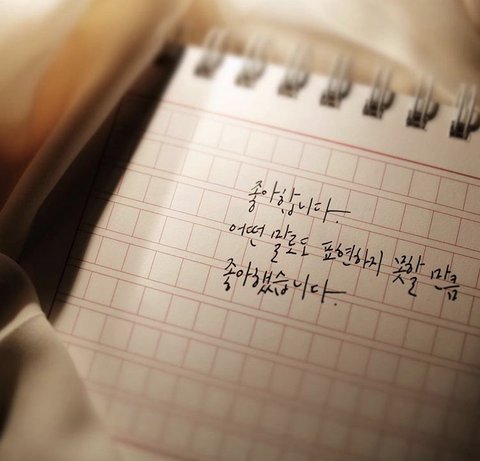 좋아합니다.
어떤 말로도 표현하지 못할 만큼
좋아했습니다.